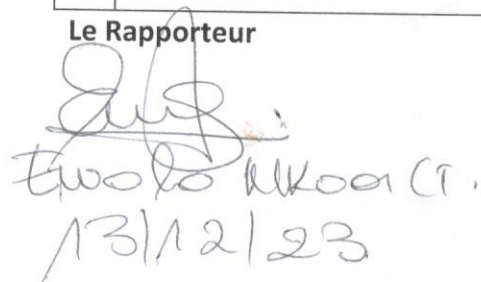 Le Rapporteur
Ewolo Nkoa CT.
13/12/23